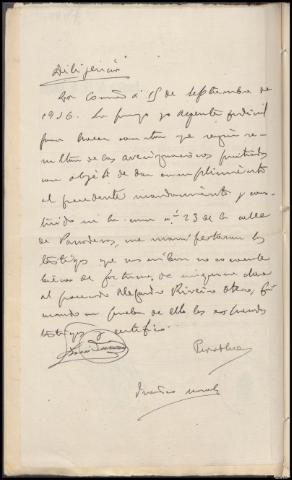 Diligencia
En Coruña á 15 de septiembre de
1936. La pongo yo agente judicial
para hacer constar que según re-
sultan de las averiguaciones practicadas
con objeto de dar cumplimiento
al precedente mandamiento y cons-
tituido en la casa nº 23 de la calle
de Panaderas, me manifestaron los
testigos que suscriben no se encuentra
bienes de fortuna, de ninguna clase
al procesado Alejandro Riveiro Otero, fir
mando en prueba de ello los expresados
testigos y certifico.